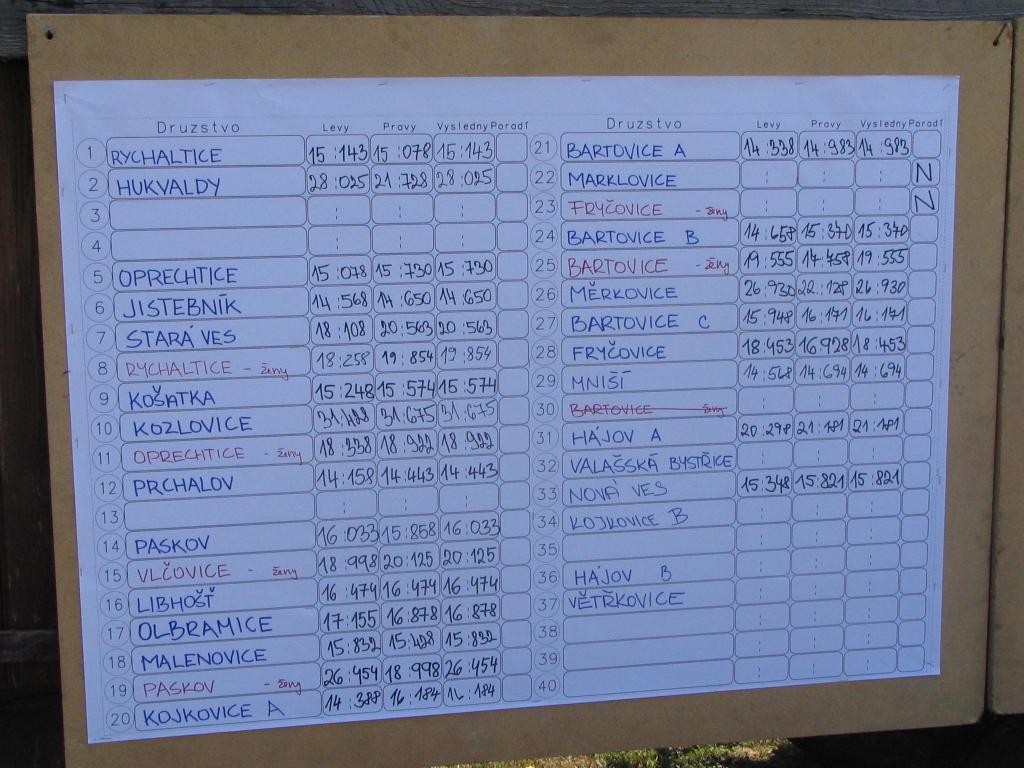 Druzstvo Levy Pravy Vysledny Poradi
1 RYCHALTICE 15:143 15:078 15:143
2 HUKVALDY 28:025 21:728 28:025
3 : : :
4 : : :
5 OPRECHTICE 15:078 15:730 15:730
6 JISTEBNÍK 14:568 14:650 14:650
7 STARÁ VES 18:108 20:563 20:563
8 RYCHALTICE - ženy 18:258 19:854 19:854
9 KOŠATKA 15:248 15:574 15:574
10 KOZLOVICE 31:428 31:675 31:675
11 OPRECHTICE - ženy 18:338 18:922 18:922
12 PRCHALOV 14:158 14:443 14:443
13 : : :
14 PASKOV 16:033 15:858 16:033
15 VLČOVICE - ženy 18:998 20:125 20:125
16 LIBHOŠŤ 16:474 16:474 16:474
17 OLBRAMICE 17:155 16:878 16:878
18 MALENOVICE 15:832 15:428 15:832
19 PASKOV - ženy 26:454 18:998 26:454
20 KOJKOVICE A 14:388 16:184 16:184
Druzstvo Levy Pravy Vysledny Poradi
21 BARTOVICE A 14:338 14:983 14:983
22 MARKLOVICE : : : N
23 FRYČOVICE - ženy : : : N
24 BARTOVICE B 14:658 15:370 15:370
25 BARTOVICE - ženy 19:555 14:458 19:555
26 MĚRKOVICE 26:930 22:128 26:930
27 BARTOVICE C 15:948 16:171 16:171
28 FRYČOVICE 18:453 16:928 18:453
29 MNIŠÍ 14:568 14:694 14:694
30 BARTOVICE ženy : : :
31 HÁJOV A 20:298 21:181 21:181
32 VALAŠSKÁ BYSTŘICE : : :
33 NOVÁ VES 15:348 15:821 15:821
34 KOJKOVICE B : : :
35 : : :
36 HÁJOV B : : :
37 VĚTŘKOVICE : : :
38 : : :
39 : : :
40 : : :